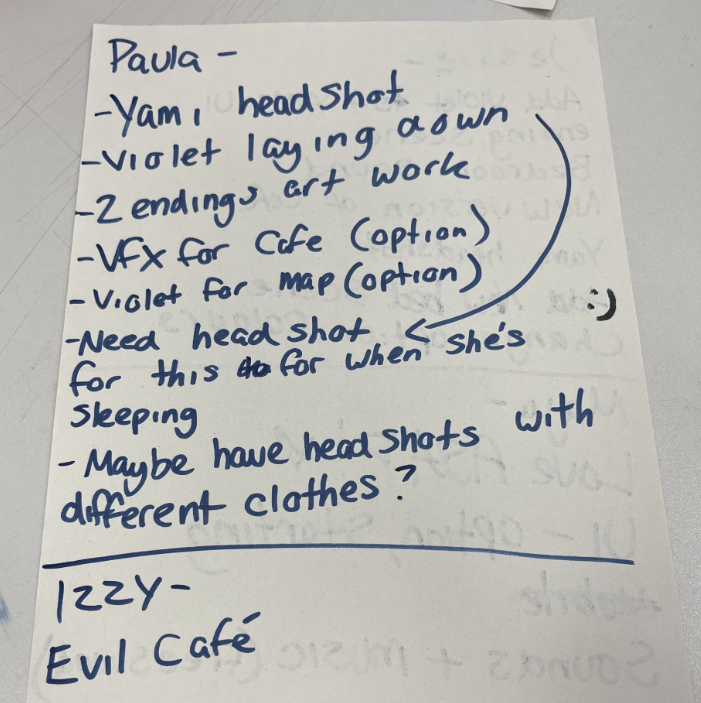 Paula -
- Yami headshot
- Violet laying down
- 2 endings art work
- VFX for Cafe (option)
- Violet for map (option)
:)
- Need head shot
for this for for when she's
sleeping
- Maybe have head shots with
different clothes?
Izzy -
Evil Café